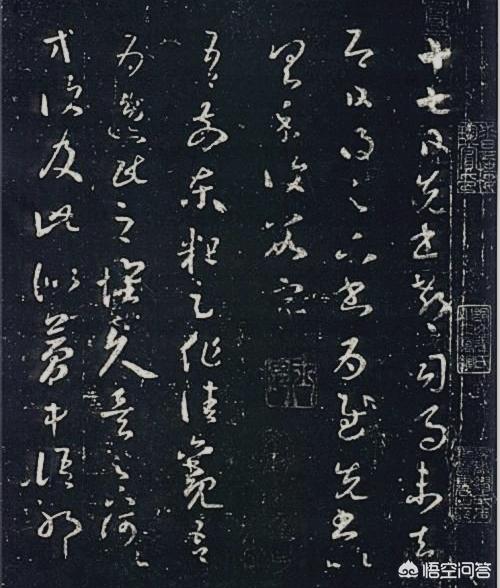 十七日先書郗司馬未去
即日得足下書為慰先書以
具示復數字
吾前東粗足作佳觀吾
為逸民之懷久矣足下何以
方復及此似夢中語耶
悟空问答